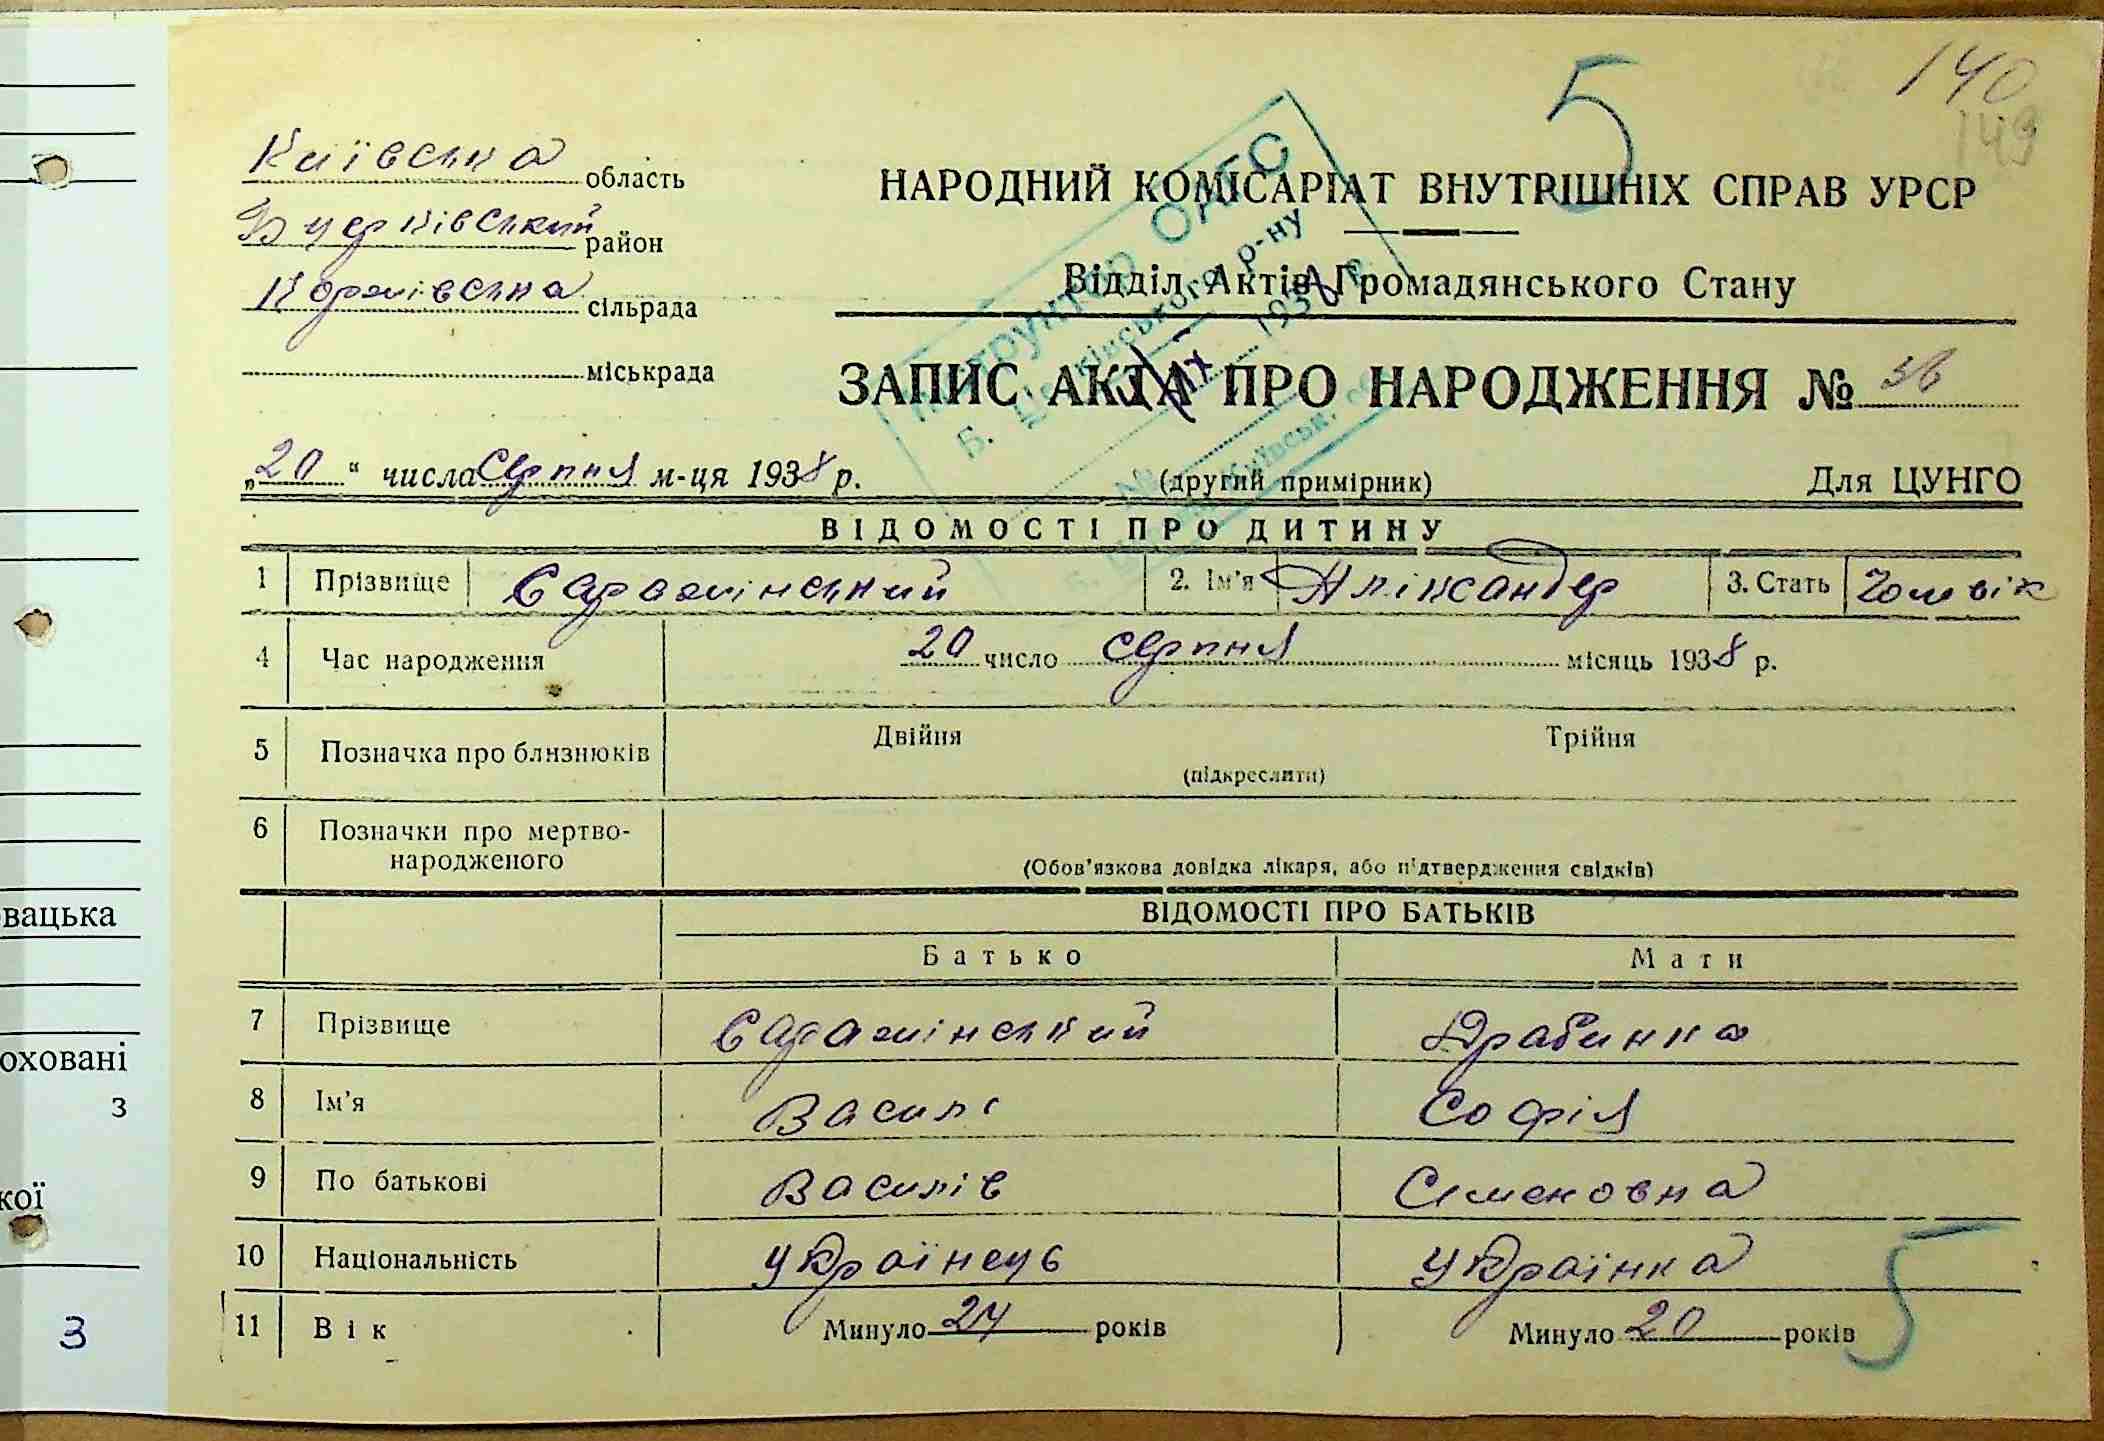 140
149
5
Київська область
НАРОДНИЙ КОМІСАРІАТ ВНУТРІШНІХ СПРАВ УРСР
район
Відділ Актів Громадянського Стану
сільрада
міськрада
ЗАПИС АКТА ПРО НАРОДЖЕННЯ № 36
"20" числа Серпня м-ця 1938 р.
(другий примірник) Для ЦУНГО
ВІДОМОСТІ ПРО ДИТИНУ
1 Прізвище 2. Ім'я Аліксандер 3. Стать Чоловік
4 Час народження 20 число серпня місяць 1938 р.
5 Позначка про близнюків Двійня Трійня
(підкреслити)
6 Позначки про мертво-
народженого
(Обов'язкова довідка лікаря, або підтвердження свідків)
ВІДОМОСТІ ПРО БАТЬКІВ
Батько Мати
7 Прізвище Драбинка
8 Ім'я Василь Софія
9 По батькові Василів Семеновна
10 Національність Українець Українка
11 Вік Минуло 24 років Минуло 20 років
5
вацька
оховані
з
кої
3